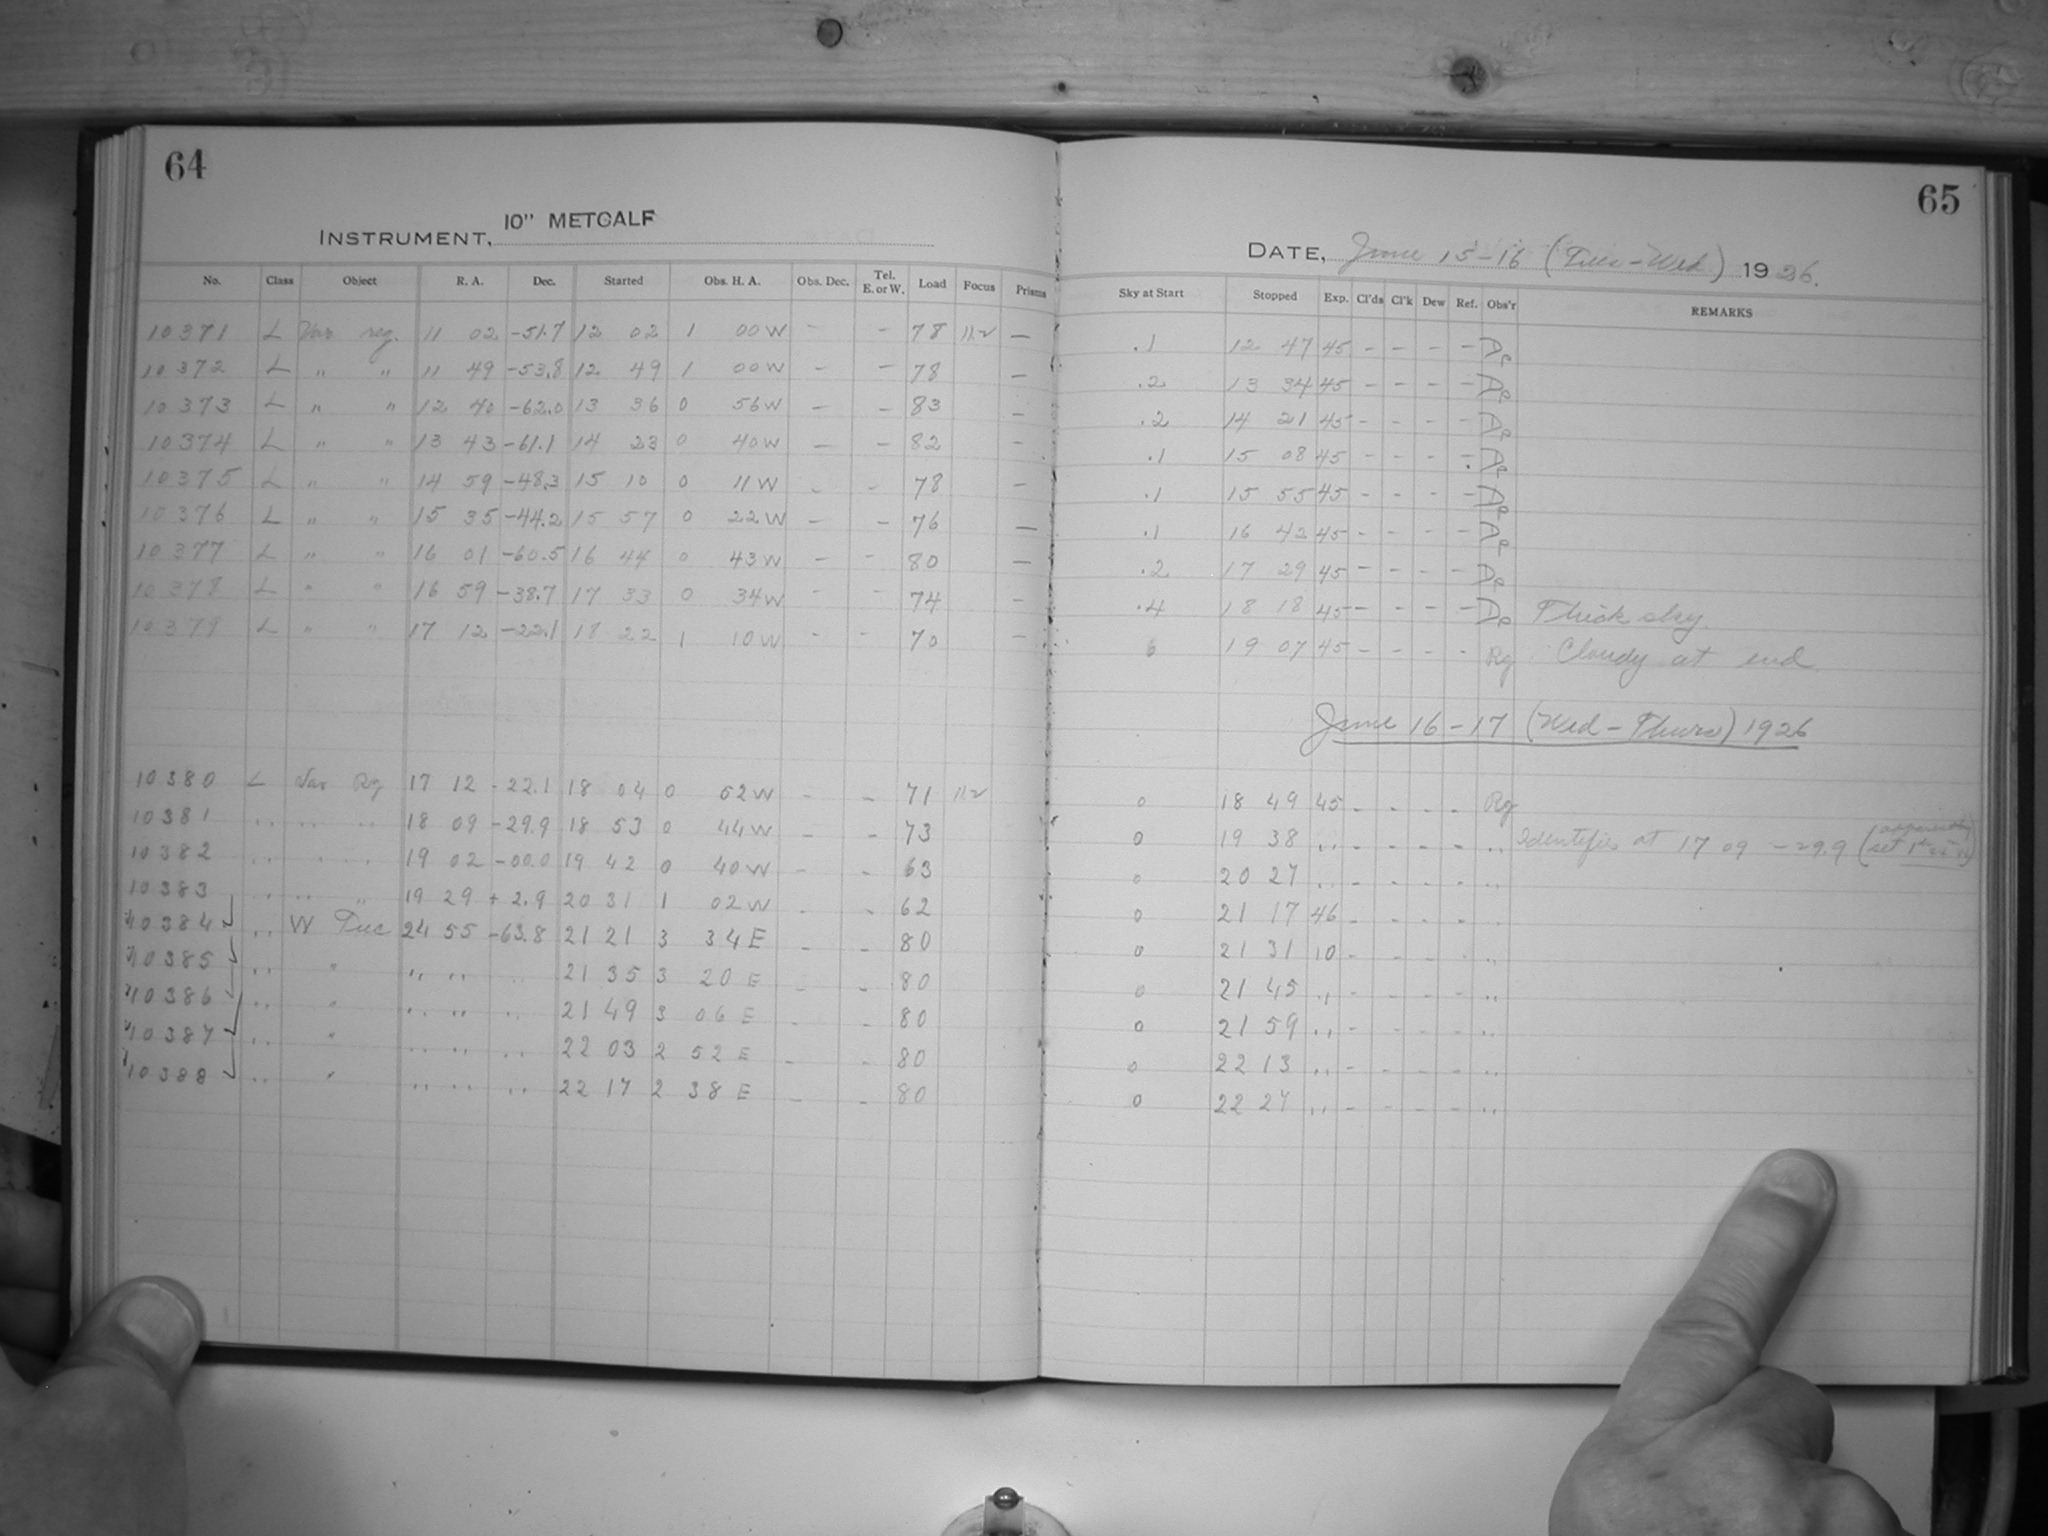 64
INSTRUMENT, 10" METCALF
No. Class Object R. A. Dec. Started Obs. H. A. Obs. Dec. Tel. E. or W. Load Focus Prisms
10371 L Var reg. 11 02 -51.7 12 02 1 00W - - 78 11.2 -
10372 L " " 11 49 -53.8 12 49 1 00W - - 78 -
10373 L " " 12 40 -62.0 13 36 0 56W - - 83 -
10374 L " " 13 43 -61.1 14 23 0 40W - - 82 -
10375 L " " 14 59 -48.3 15 10 0 11W - - 78 -
10376 L " " 15 35 -44.2 15 57 0 22W - - 76 -
10377 L " " 16 01 -60.5 16 44 0 43W - - 80 -
10378 L " " 16 59 -38.7 17 33 0 34W - - 74 -
10379 L " " 17 12 -22.1 18 22 1 10W - - 70 -
10380 L Var Rg 17 12 -22.1 18 04 0 52W - - 71 11.2
10381 " " " 18 09 -29.9 18 53 0 44W - - 73
10382 " " " 19 02 -00.0 19 42 0 40W - - 63
10383 " " " 19 29 +2.9 20 31 1 02W - - 62
10384 " W Tuc 24 55 -63.8 21 21 3 34E - - 80
10385 " " " " " 21 35 3 20E - - 80
10386 " " " " " 21 49 3 06E - - 80
10387 " " " " " 22 03 2 52E - - 80
10388 " " " " " 22 17 2 38E - - 80
65
DATE, June 15-16 (Tues-Wed) 1926.
Sky at Start Stopped Exp. Cl'ds Cl'k Dew Ref. Obs'r REMARKS
.1 12 47 45 - - - -
.2 13 34 45 - - - -
.2 14 21 45 - - - -
.1 15 08 45 - - - -
.1 15 55 45 - - - -
.1 16 42 45 - - - -
.2 17 29 45 - - - -
.4 18 18 45 - - - - Thick sky.
6 19 07 45 - - - - Rg Cloudy at end
June 16-17 (Wed-Thurs) 1926
0 18 49 45 - - - - Rg
0 19 38 " - - - - " Identifies at 17 09 -29.9 (apparently set 1
0 20 27 " - - - - "
0 21 17 46 - - - - "
0 21 31 10 - - - - "
0 21 45 " - - - - "
0 21 59 " - - - - "
0 22 13 " - - - - "
0 22 27 " - - - - "